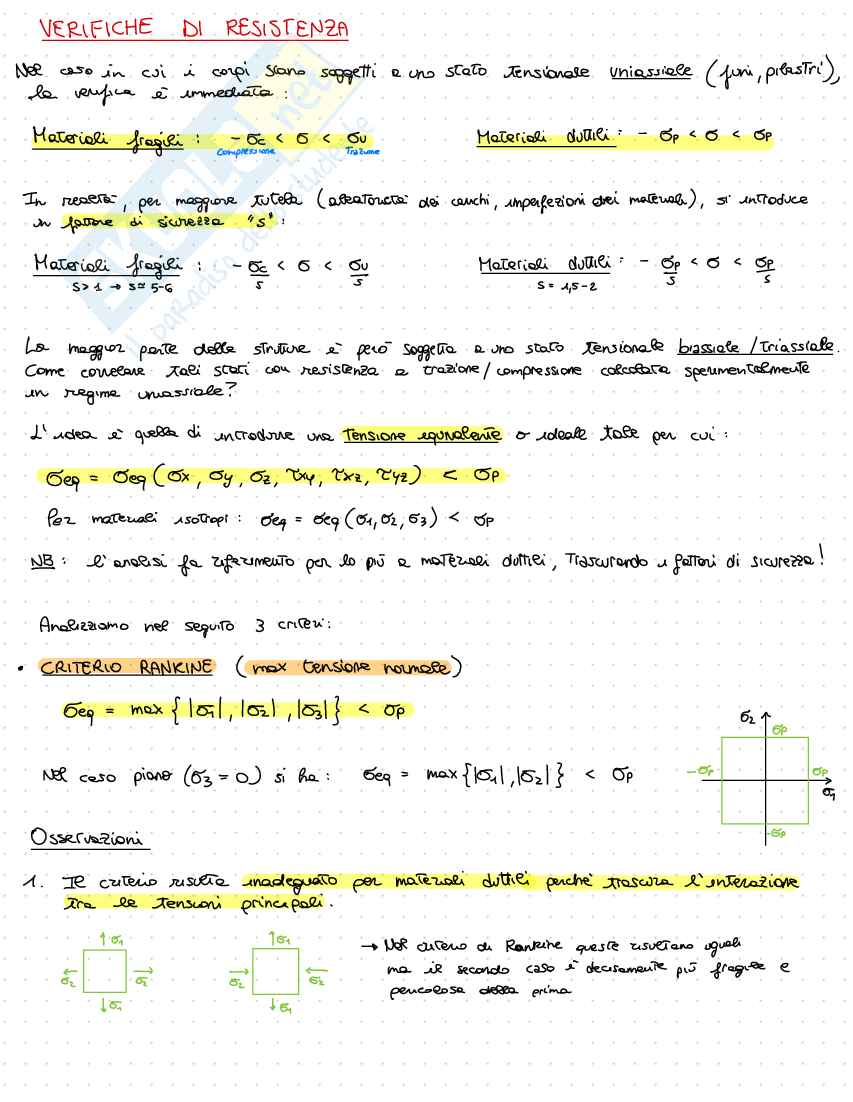 VERIFICHE DI RESISTENZA
Nel caso in cui i corpi siano soggetti a uno stato tensionale uniassiale (funi, pilastri),
la verifica è immediata:
Materiali fragili: - σc < σ < σu
Compressione Trazione
Materiali duttili: - σp < σ < σp
In realtà, per maggiore tutela (aleatorietà dei carichi, imperfezioni dei materiali), si introduce
un fattore di sicurezza "s":
Materiali fragili: - σc/s < σ < σu/s
s>1 → s≃5-6
Materiali duttili: - σp/s < σ < σp/s
s = 1,5-2
La maggior parte delle strutture è però soggetta a uno stato tensionale biassiale/triassiale.
Come correlare tali stati con resistenza a trazione/compressione calcolata sperimentalmente
in regime uniassiale?
L'idea è quella di introdurre una tensione equivalente o ideale tale per cui:
σeq = σeq (σx, σy, σz, τxy, τxz, τyz) < σp
Per materiali isotropi: σeq = σeq (σ1, σ2, σ3) < σp
NB: l'analisi fa riferimento per lo più a materiali duttili, trascurando i fattori di sicurezza!
Analizziamo nel seguito 3 criteri:
• CRITERIO RANKINE (max tensione normale)
σeq = max {|σ1|, |σ2|, |σ3|} < σp
Nel caso piano (σ3 = 0) si ha: σeq = max{|σ1|, |σ2|} < σp
σ2
σp
-σp σp
σ1
-σp
Osservazioni
1. Il criterio risulta inadeguato per materiali duttili perché trascura l'interazione
tra le tensioni principali.
↑σ1 ↑σ1
σ2 σ2 σ2 σ2
↓σ1 ↓σ1
→ Nel criterio di Rankine queste risultano uguali
ma il secondo caso è decisamente più fragile e
pericolosa della prima
EKGLO.net
il paradiso dello studente